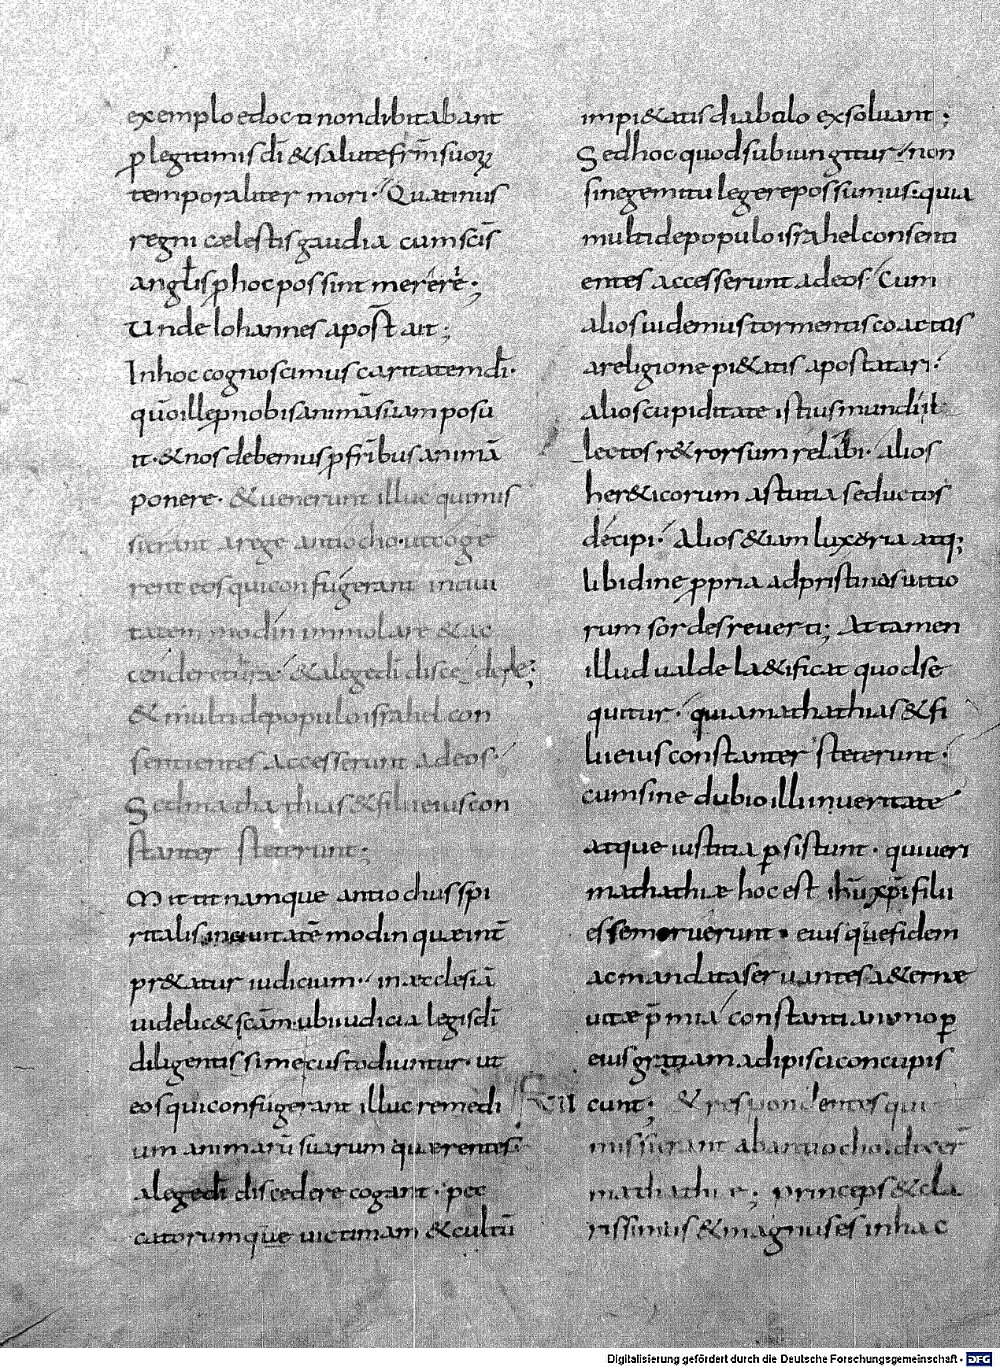 exemplo edocti non dubitabant
p̱ legitimis dī & salute fr̄m suoꝝ
temporaliter mori· Quatinus
regni cælestis gaudia cum scīs
angl̄is p̱ hoc possint merere·;
Unde Iohannes apost̄ ait;
In hoc cognoscimus caritatem dī·
qūo ille p̱ nobis animā suam posu
it· & nos debemus p̱ fr̄ibus animā
ponere· & uenerunt illuc qui mis
si erant a rege antiocho· ut coge
rent eos qui confugerant in ciui
tatem modin immolare & ac
cendere tura & a lege dī discedere;
& multi de populo israhel con
sentientes accesserunt ad eos·
Sed mathathias & filii eius con
stanter steterunt·
Mittit namque antiochus spi
ritalis in ciuitatē modin quæ int̄
pr&atur iudicium· in æcclesiā
uidelic& scām· ubi iudicia legis dī
diligentissime custodiuntur· ut
eos qui confugerant illuc remedi
um animarū suarum quærentes
a lege dī discedere cogant· pec
catorumque uictimam & cultū
impi&atis diabolo exsoluant;
Sed hoc quod subiungitur· non
sine gemitu legere possumus· quia
multi de populo israhel consenti
entes accesserunt ad eos· Cum
alios uidemus tormentis coactos
a religione pi&atis apostatari·
alios cupiditate istius mundi
lectos r&rorsum relābi· alios
her&icorum astutia seductos
decipi· Alios &iam luxoria atq;
libidine p̱pria ad pristinos uitio
rum sordes reuerti; Attamen
illud ualde la&ificat quod se
quitur· quia mathathias & fi
lii eius constanter steterunt·
cum sine dubio illi in ueritate
atque iustitia p̱sistunt· qui ueri
mathathiæ hoc est ihū xp̄i filii
esse meruerunt· eiusque fidem
ac mandata seruantes a&ernæ
uitæ p̄mia constanti animo p̱
eius gratiam adipisci concupis
VII cunt; & respondentes qui
missi erant ab antiocho· dixer̄
mathathiæ; princeps & cla
rissimus & magnus es in hac